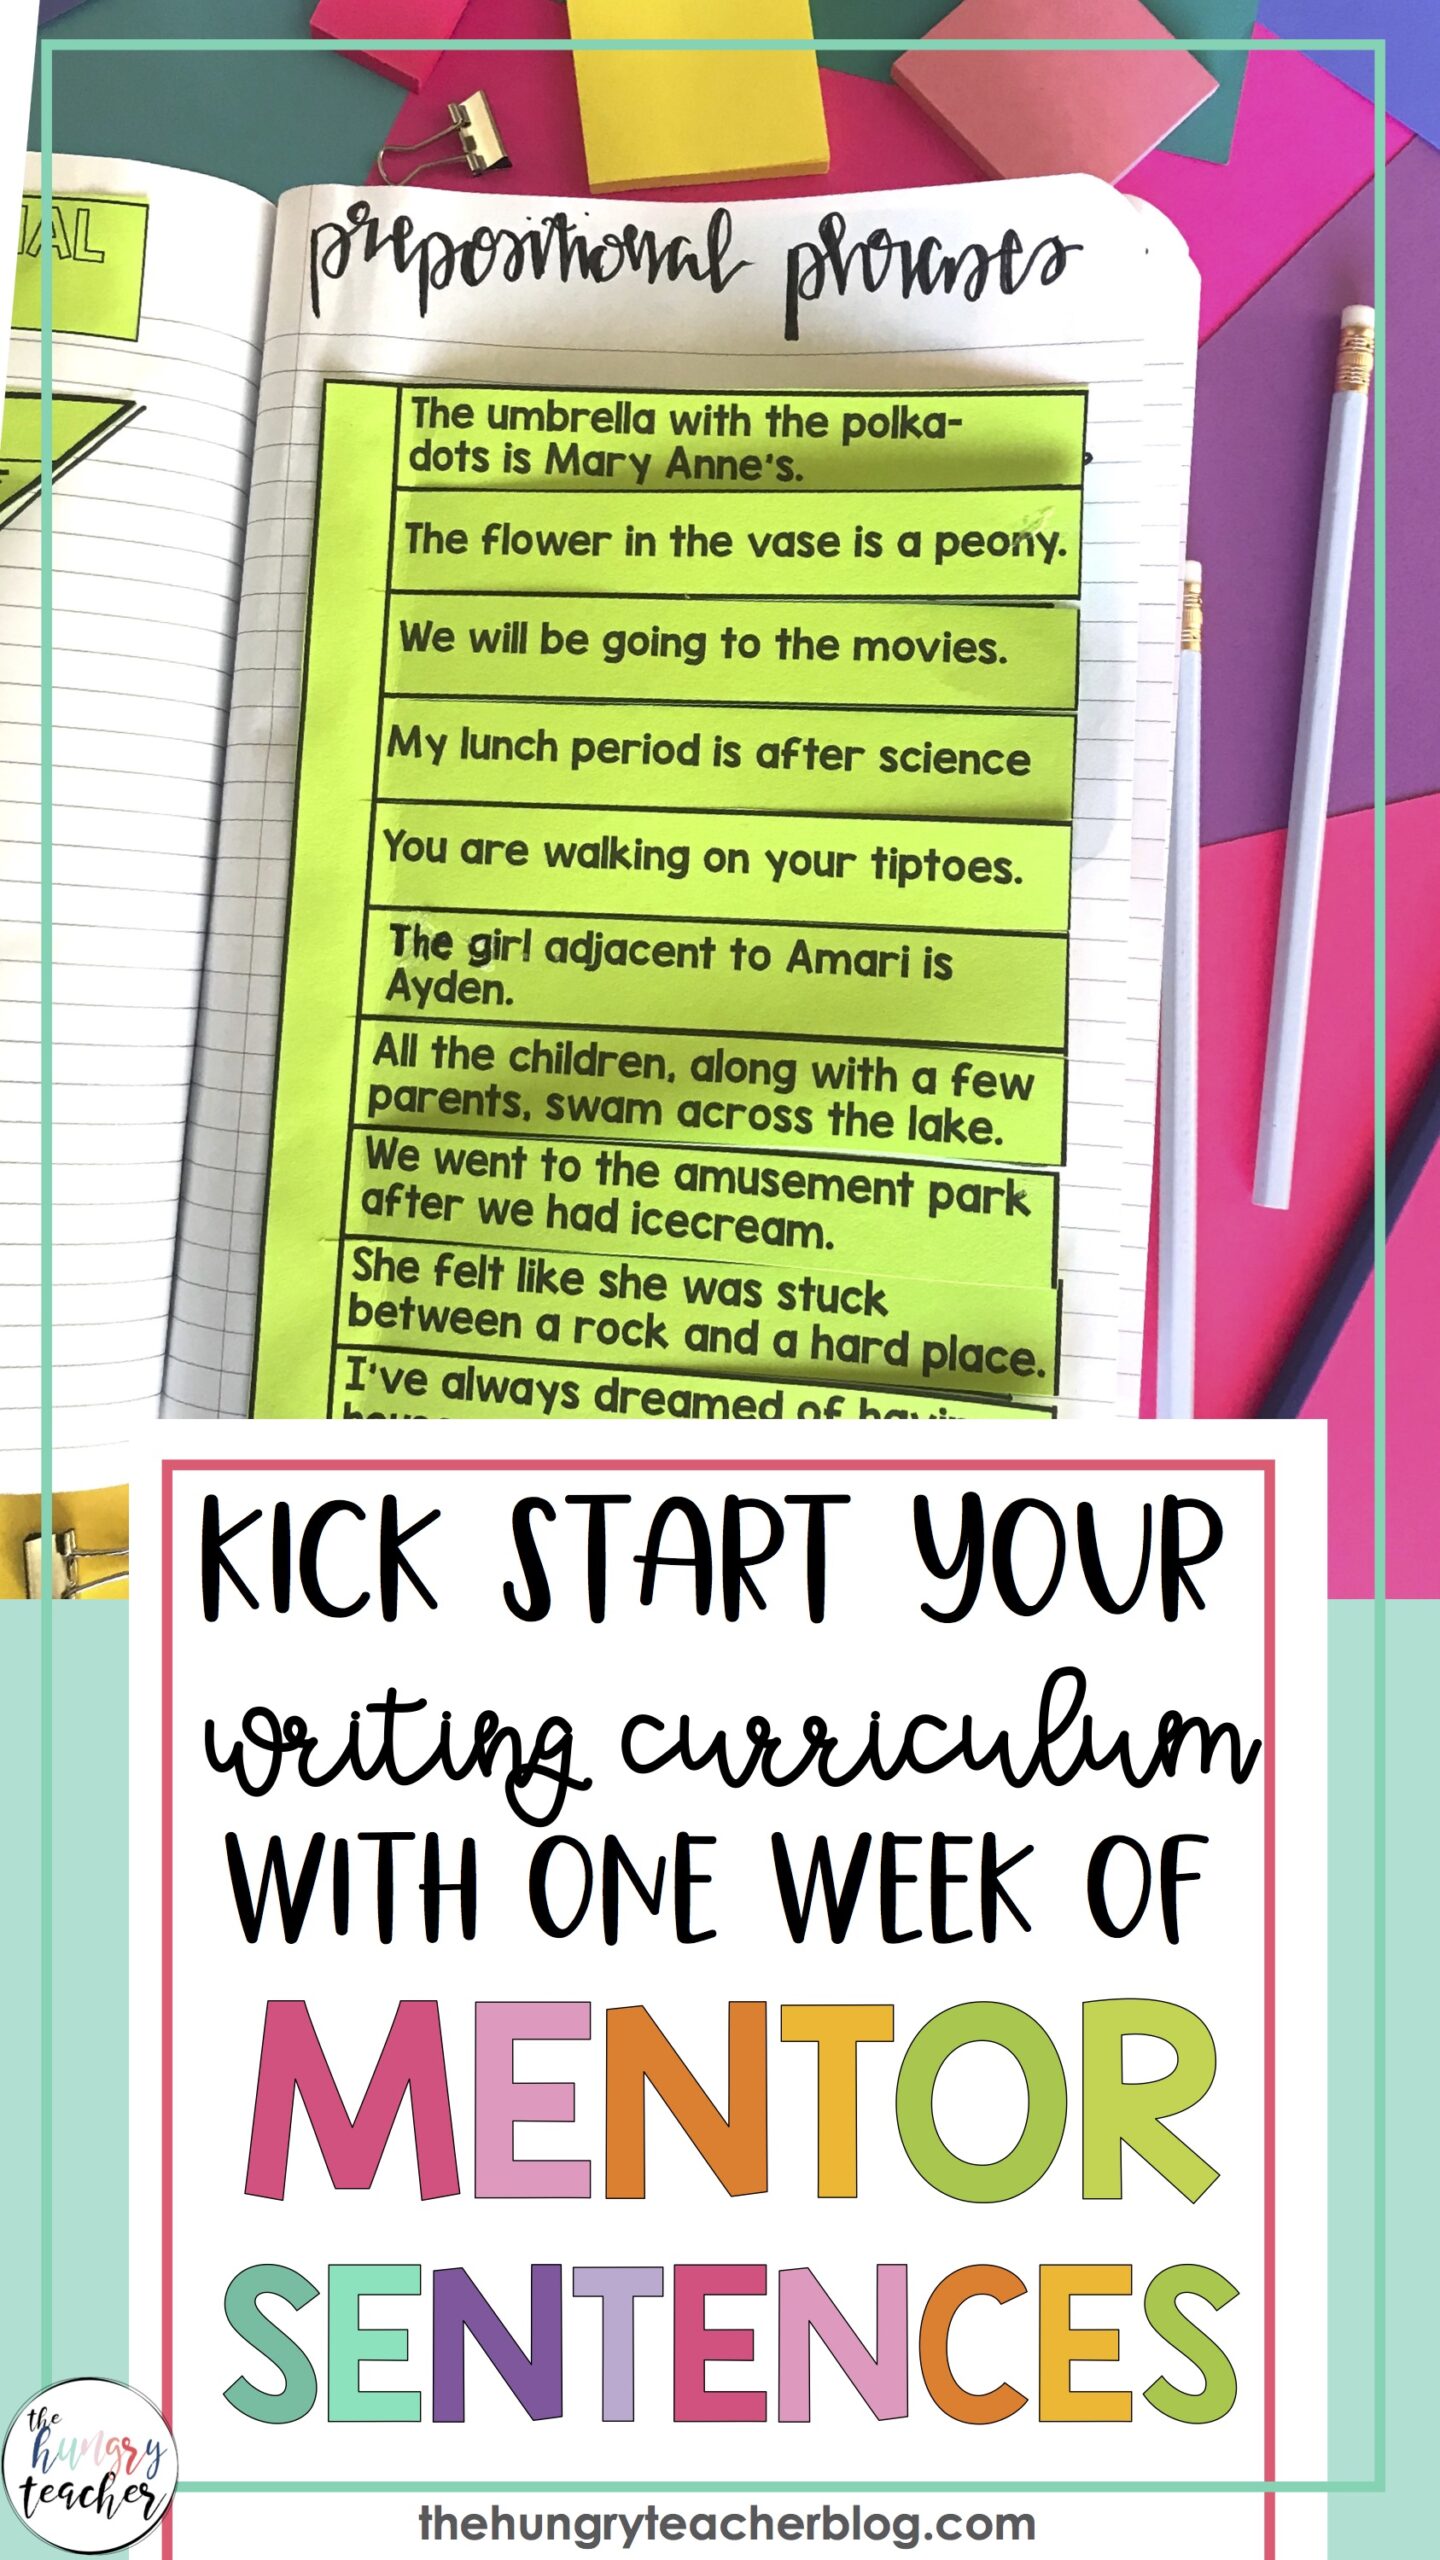 IAL
prepositional phrases
The umbrella with the polka-
dots is Mary Anne's.
The flower in the vase is a peony.
We will be going to the movies.
My lunch period is after science
You are walking on your tiptoes.
The girl adjacent to Amari is
Ayden.
All the children, along with a few
parents, swam across the lake.
We went to the amusement park
after we had icecream.
She felt like she was stuck
between a rock and a hard place.
I've always dreamed of
KICK START YOUR
writing curriculum
WITH ONE WEEK OF
MENTOR
SENTENCES
the
hungry
teacher
thehungryteacherblog.com